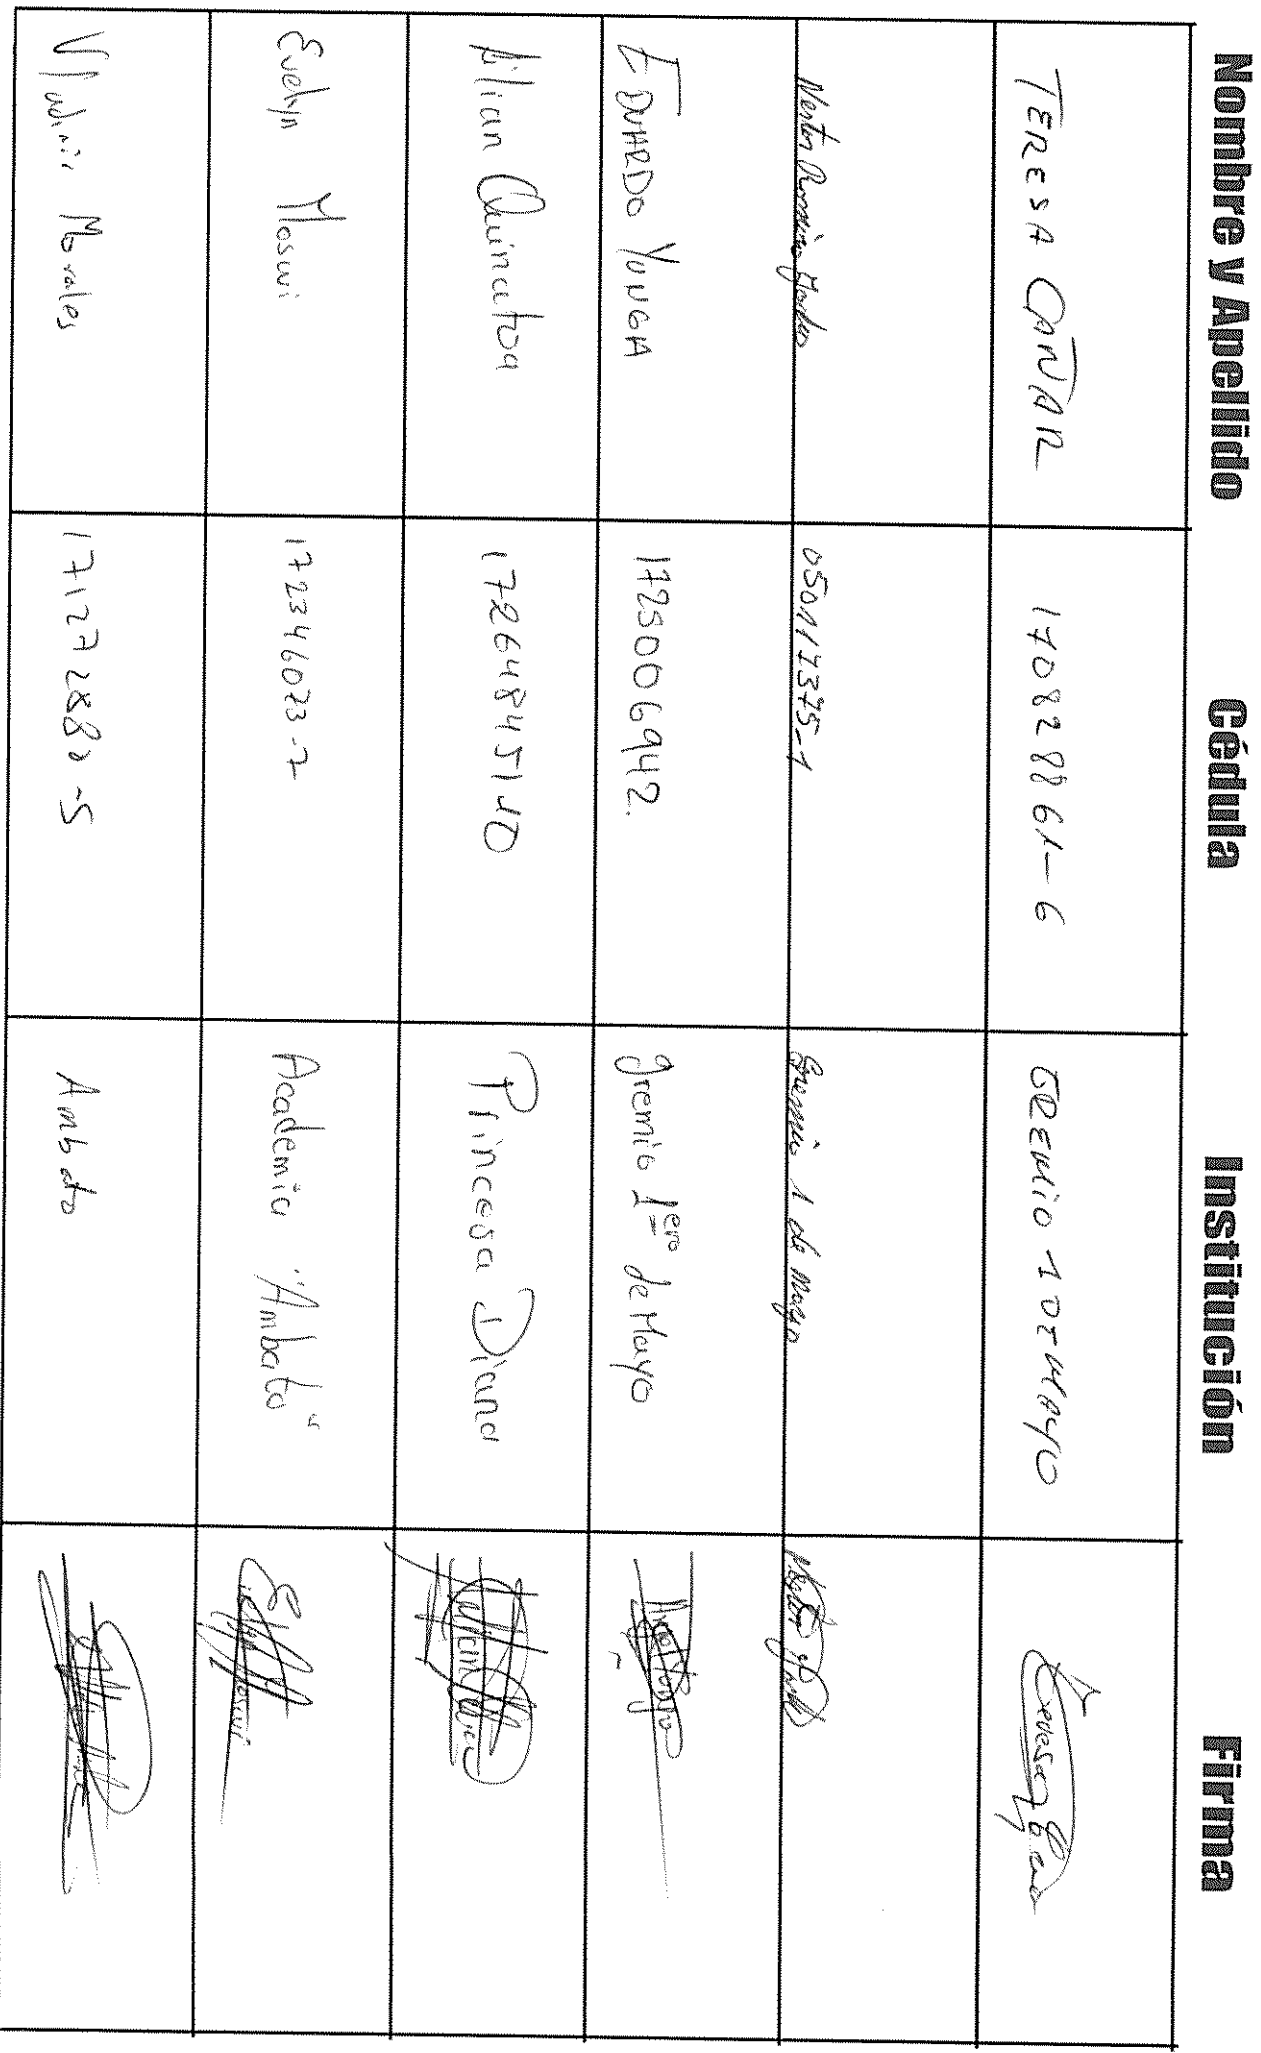 Nombre y Apellido Cédula Institución Firma
TERESA CAÑAR 170828861-6 GREMIO 1 DE MAYO
Nestor Ramiro 050117375-1 Gremio 1 de Mayo
EDUARDO YUNGA 1725006942. gremio 1ero de Mayo
Lilian Quinatoa 172648451-0 Princesa Diana
Evelyn Yosui 172346073-7 Academia "Ambato"
Vladimir Morales 171272880-5 Ambato